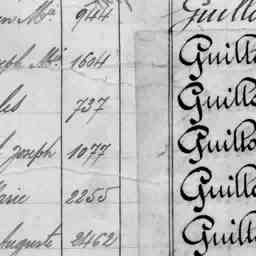 en Mie 944 Guillo
eph Mie 1604 Guillo
les 737 Guillo
h Joseph 1077 Guillo
Marie 2255 Guillo
Auguste 2462 Guill